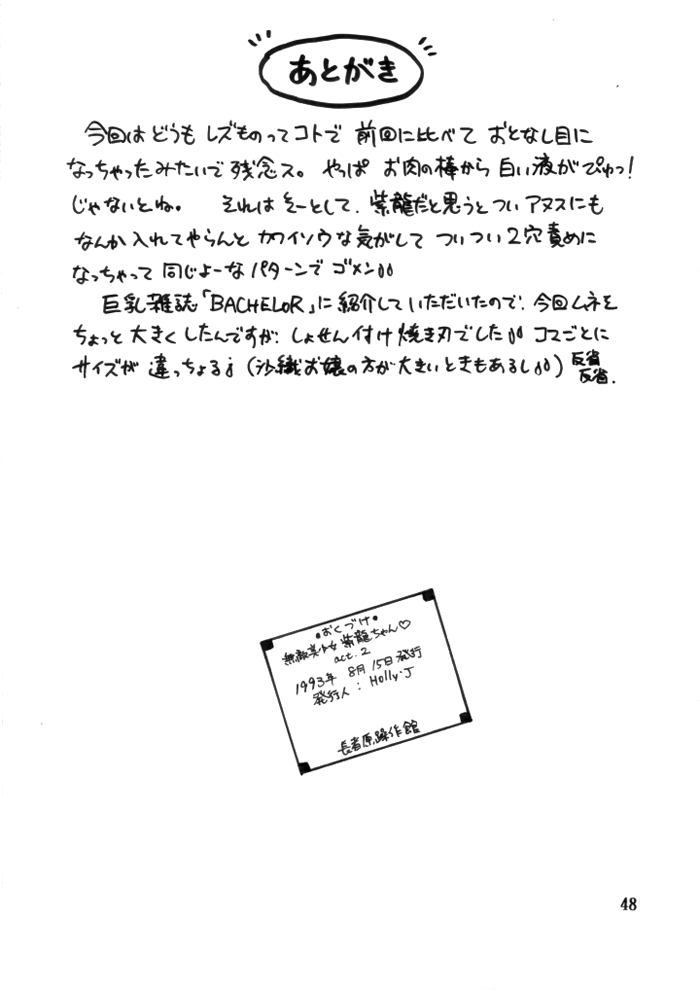 あとがき
今回はどうも レズものってコトで 前回に比べて おとなし目に
なっちゃったみたいで残念ス。 やっぱ お肉の棒から 白い液がぴゅっ!
じゃないとね。 それはそーとして、紫龍だと思うとつい アヌスにも
なんか入れてやらんと カワイソウな気がして ついつい2穴責めに
なっちゃって 同じよーな パターンで ゴメン
巨乳雑誌「BACHELOR」に紹介していただいたので、今回ムネを
ちょっと大きくしたんですが、しょせん付け焼き刃でした コマごとに
サイズが 違っちょる (沙織お嬢の方が大きいときもあるし) 反省
反省.
•おくづけ•
無敵美少女 紫龍ちゃん♡
act.2
1993年 8月15日発行
発行人 : Holly・J
長者原操作館
48